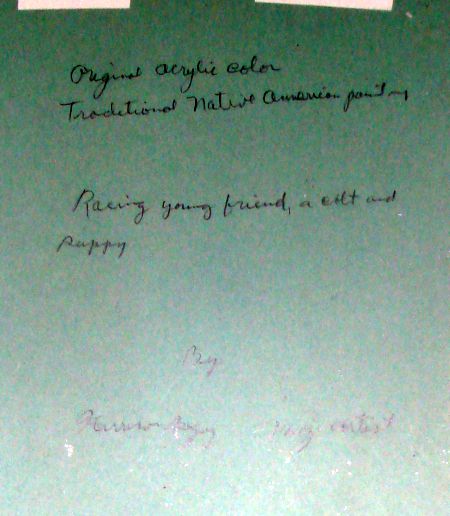 Original acrylic color
Traditional Native American painting
Racing young friend, a colt and
puppy
By
Harrison Begay